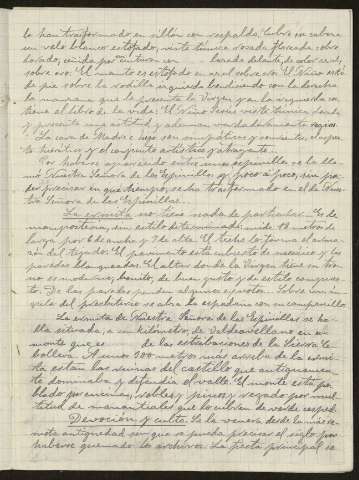 lo han trasformado en sillón con respaldo. Cubre su cabeza
un velo blanco estofado, viste túnica rosada floreada sobre
dorado, ceñida por cintura con lazada delante, de color azul,
sobre oro. El manto es estofado en azul sobre oro. El Niño está
de pie sobre la rodilla izquierda bendiciendo con la derecha
la manzana que le presenta la Virgen y en la izquierda con
tiene el libro de la vida. El Niño Jesús viste túnica verde
y presenta una actitud y ademán verdaderamente regios.
Las caras de Madre e hijo son simpáticas y sonrientes, el aspec
to hierático y el conjunto artístico y atrayente.
Por haberse aparecido entre unos espinillos se la lla
mó Nuestra Señora de los Espinillos y, poco a poco, sin po
der precisar en qué tiempo, se ha trasformado en el de Nues
tra Señora de las Espinillas.
La ermita no tiene nada de particular. Es de
mampostería, sin estilo determinado; mide 18 metros de
larga por 6 de ancho y 7 de alta. El techo lo forma el arma
zón del tejado. El pavimento está compuesto de mosaicos y las
paredes blanqueadas. El altar donde la Virgen tiene su tro
no es moderno, bonito, de buen gusto y de estilo compues
to. De las paredes penden algunos exvotos. Sobre un án
gulo del presbiterio se alza la espadaña con su campanillo.
La ermita de Nuestra Señora de las Espinillas se ha
lla situada, a un kilómetro, de Valdeavellano en un
monte que es de las estribaciones de la Sierra Ce
bollera. A unos 300 metros más arriba de la ermi
ta están las ruinas del castillo que antiguamen
te dominaba y defendía el valle. El monte está po
blado por encinas, robles y pinos y regado por mul
titud de manantiales que lo cubren de verde césped.
Devoción y culto. Se la venera desde la más re
mota antigüedad sin que se pueda precisar el siglo por
haberse quemado los archivos. La fiesta principal se